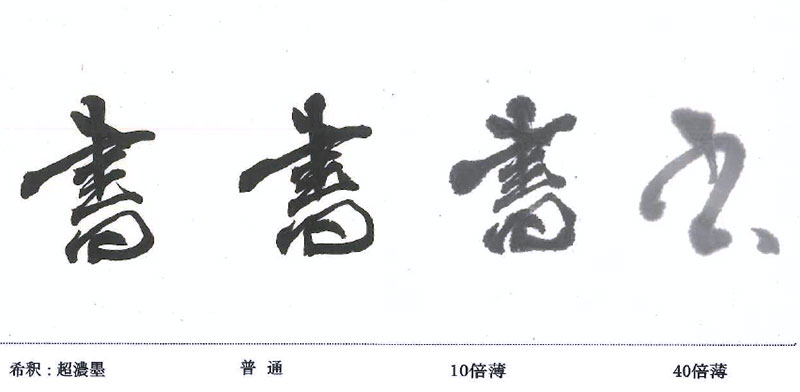 書 書 書
希釈：超濃墨 普通 10倍薄 40倍薄